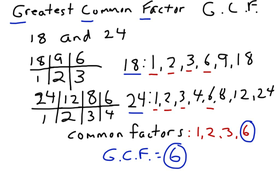 Greatest Common Factor G.C.F.
18 and 24
18 9 6
1 2 3
18: 1, 2, 3, 6, 9, 18
24 12 8 6
1 2 3 4
24: 1, 2, 3, 4, 6, 8, 12, 24
common factors: 1, 2, 3, 6
G.C.F. = 6